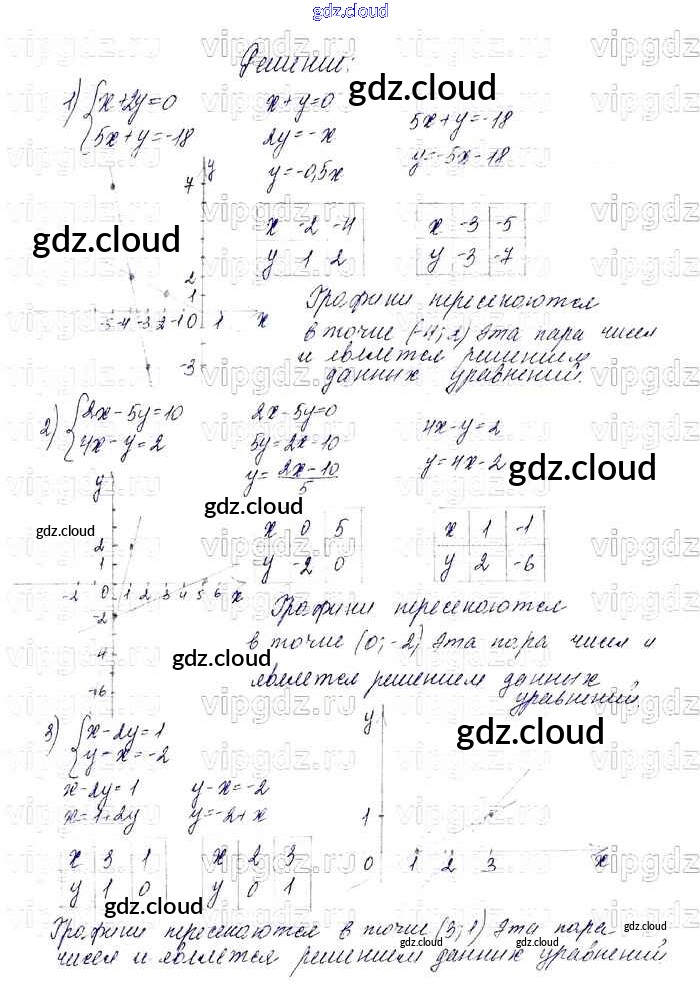 gdz.cloud
Решение:
1) { x+2y=0
5x+y=-18
x+y=0
2y=-x
y=-0,5x
5x+y=-18
y=-5x-18
gdz.cloud
x -2 -4
y 1 2
x -3 -5
y -3 -7
y
7
2
1
-5 -4 -3 -2 -1 0 1 x
-3
gdz.cloud
Графики пересекаются
в точке (-4; 2) Эта пара чисел
и является решением
данных уравнений.
2) { 2x-5y=10
4x-y=2
2x-5y=0
5y=2x-10
y= 2x-10
5
4x-y=2
y=4x-2
gdz.cloud
gdz.cloud
gdz.cloud
x 0 5
y -2 0
x 1 -1
y 2 -6
y
2
1
-2 0 1 2 3 4 5 6 x
-2
-4
-6
Графики пересекаются
в точке (0; -2) Эта пара чисел и
является решением данных
уравнений.
gdz.cloud
3) { x-2y=1
y-x=-2
x-2y=1
x=1+2y
y-x=-2
y=-2+x
gdz.cloud
x 3 1
y 1 0
x 2 3
y 0 1
y
1
0 1 2 3 x
gdz.cloud
Графики пересекаются в точке (3; 1) Эта пара
чисел и является решением данных уравнений
gdz.cloud
gdz.cloud
gdz.cloud
vipgdz.ru